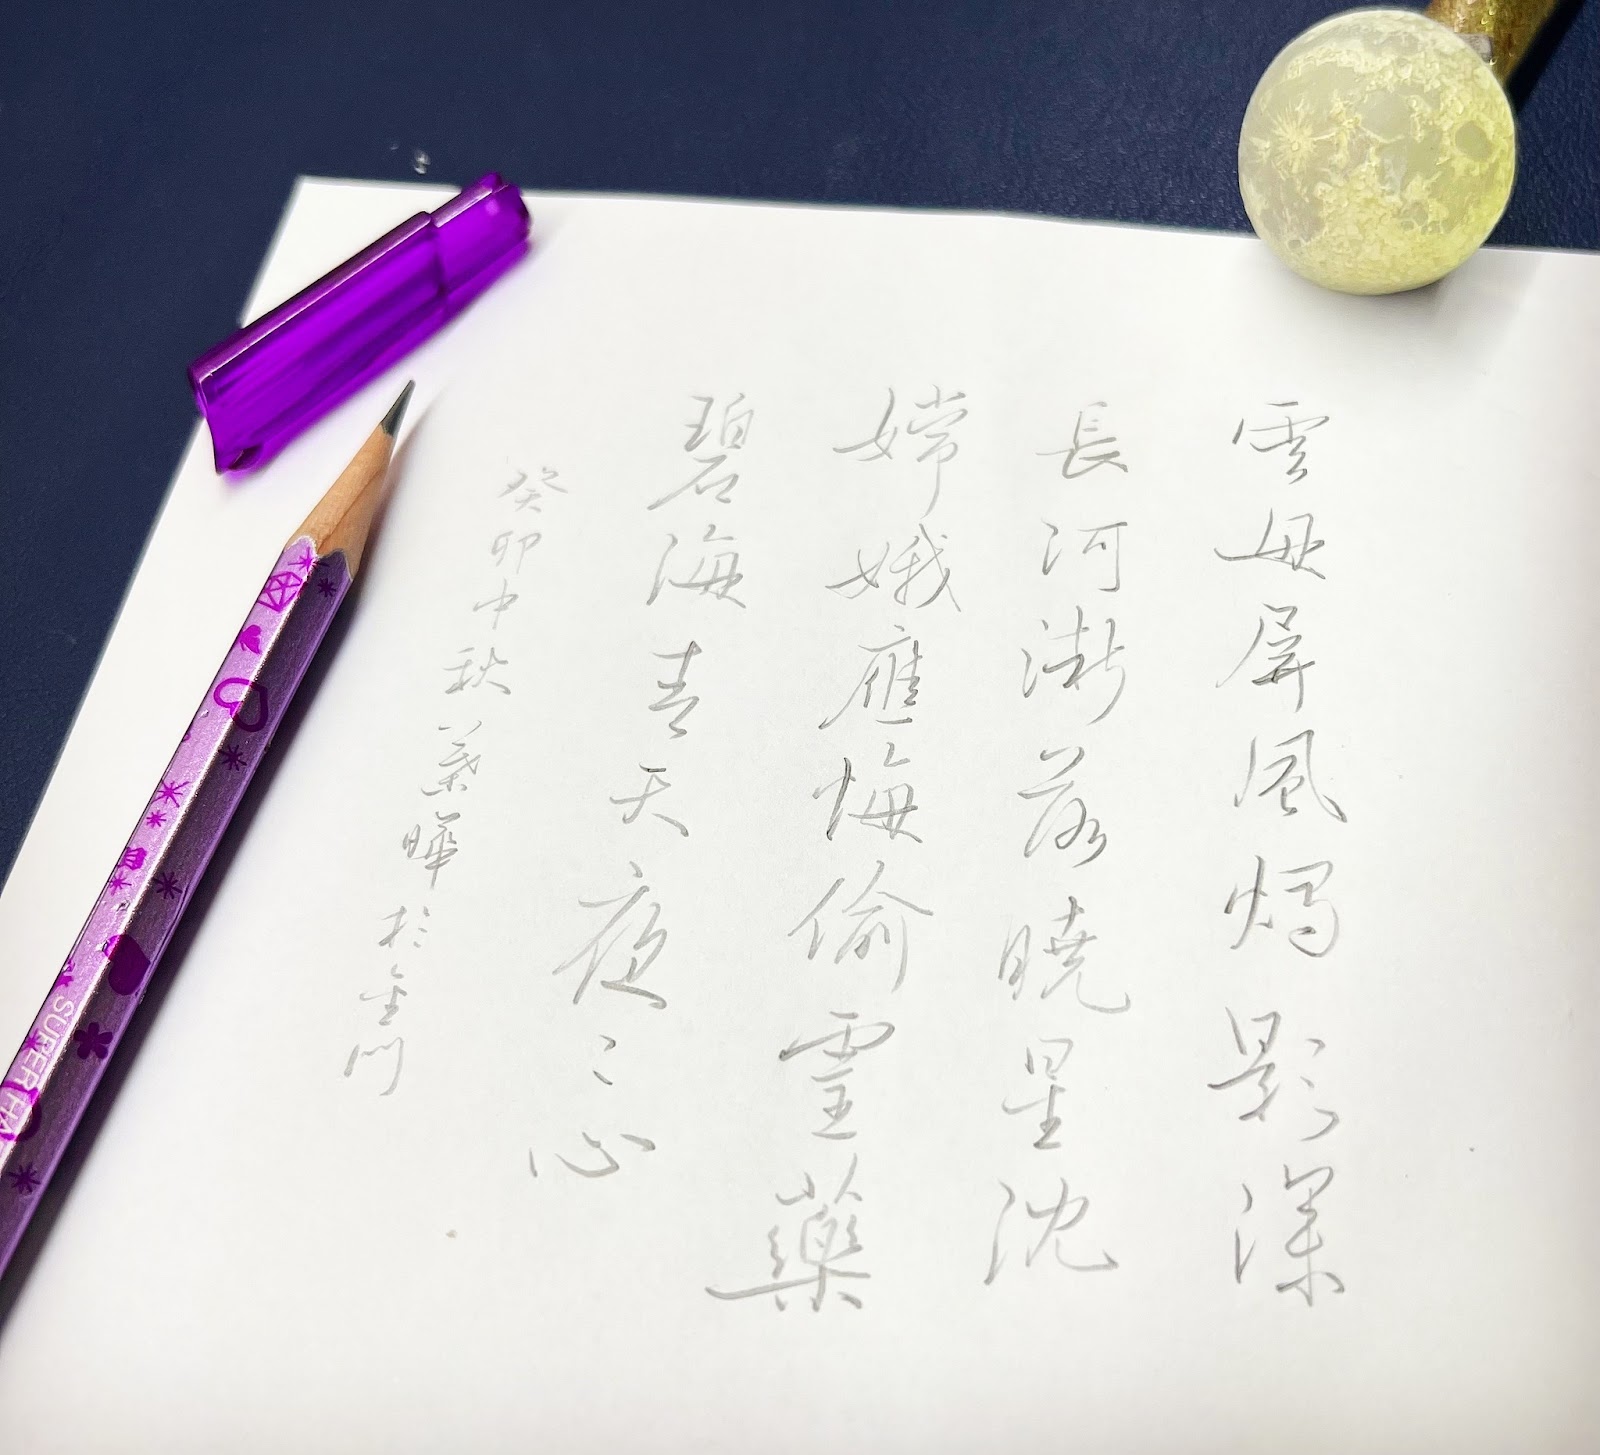 雲母屏風燭影深
長河漸落曉星沈
嫦娥應悔偷靈藥
碧海青天夜〻心
癸卯中秋葉曄於金門
SUPER